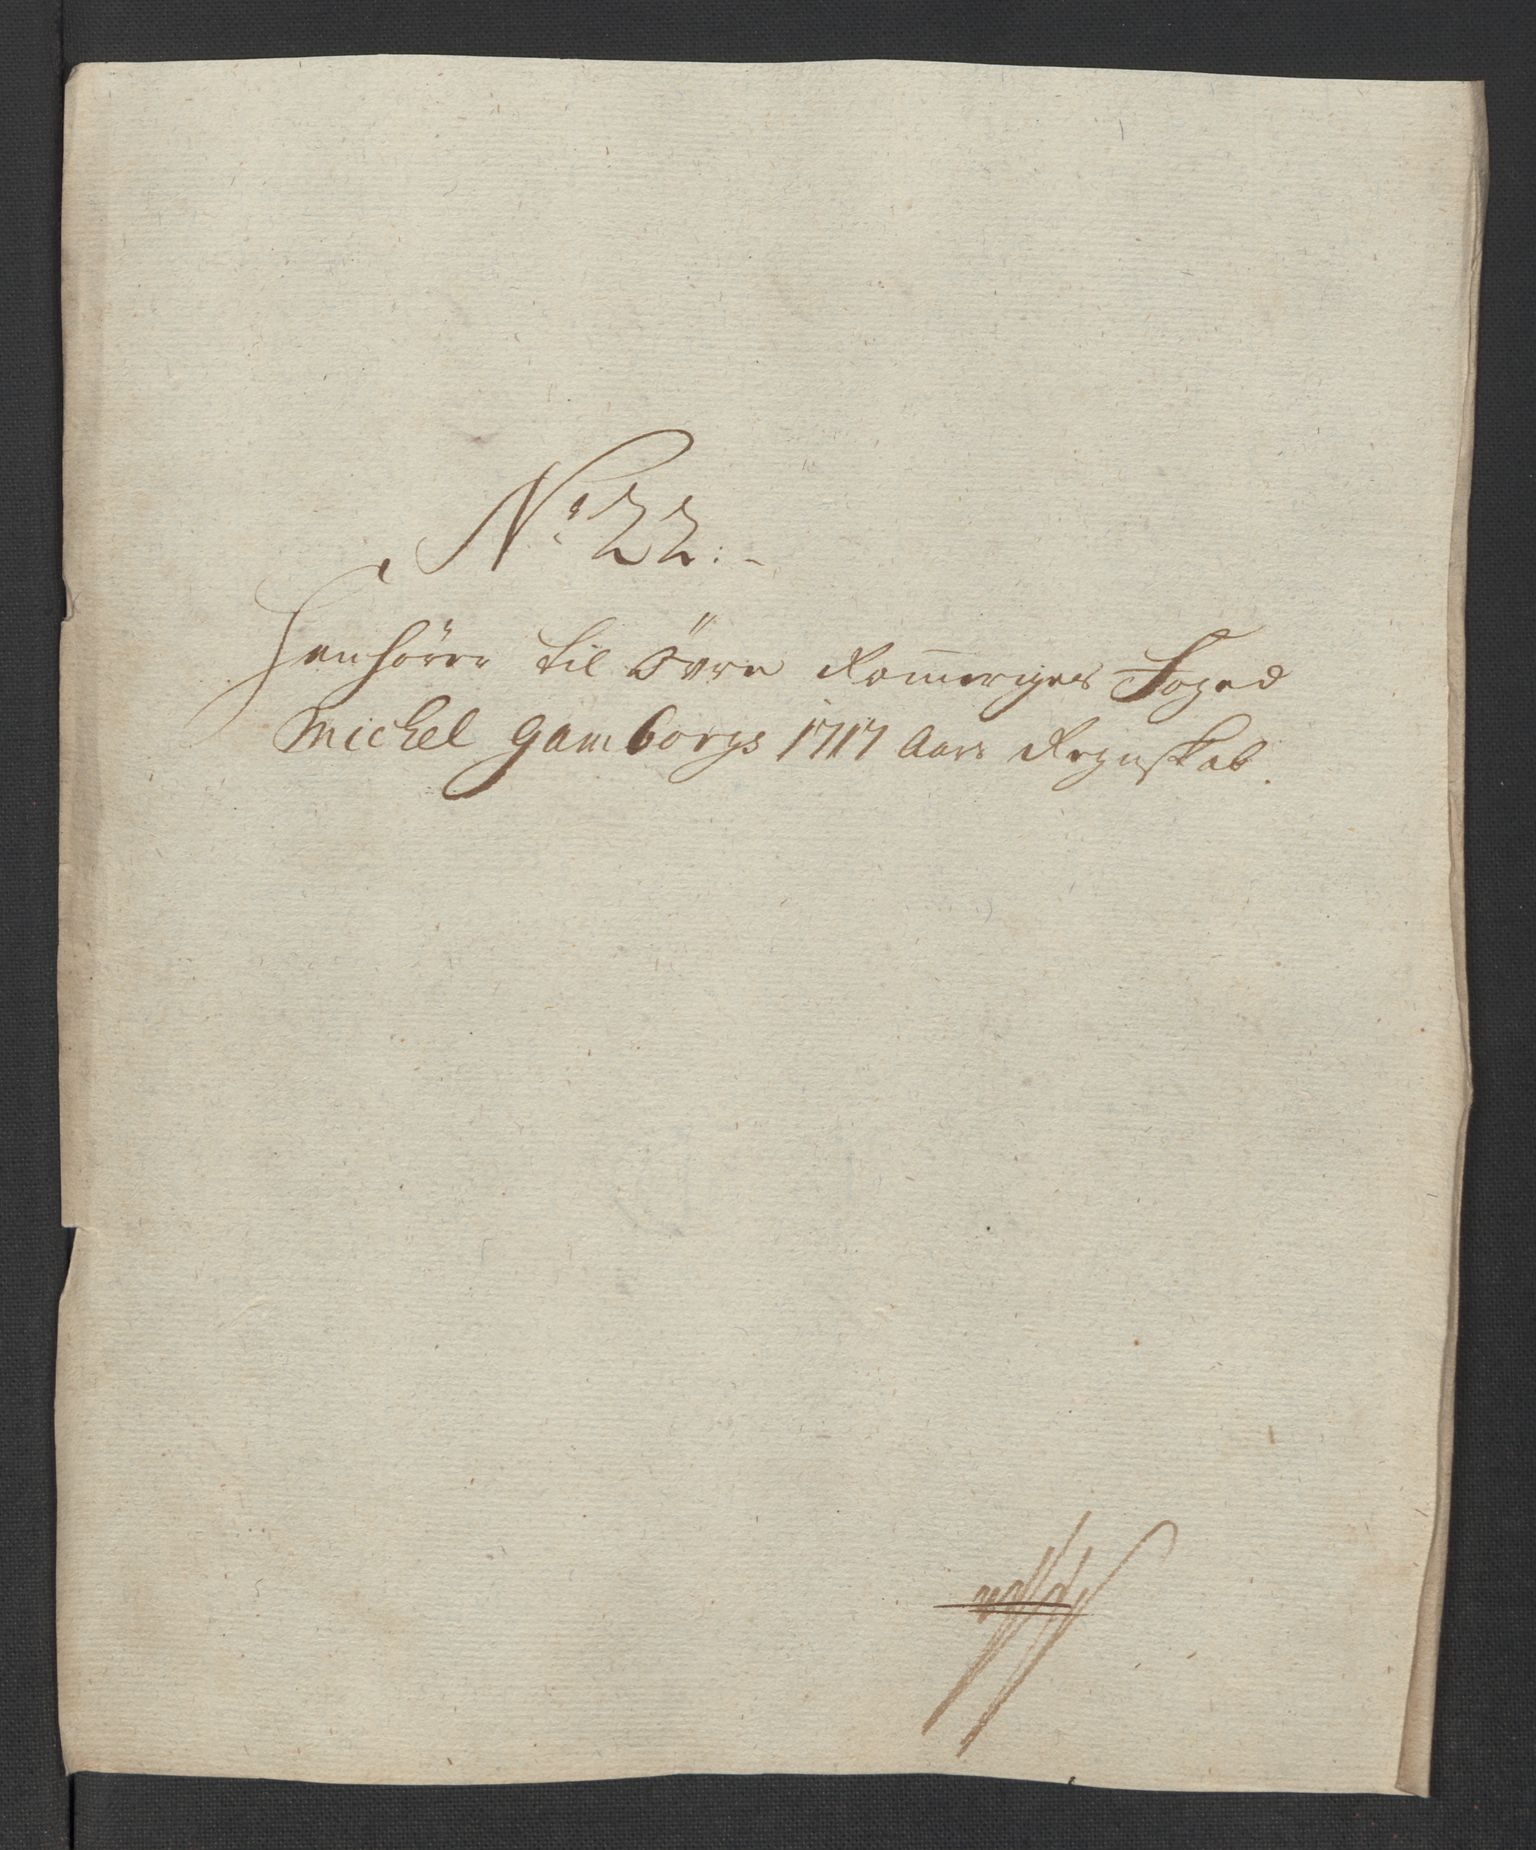 No 22.
Henhörer til Öfre Romeriges Foged
Michel Gamborgs 1717 Aars Regnskab.